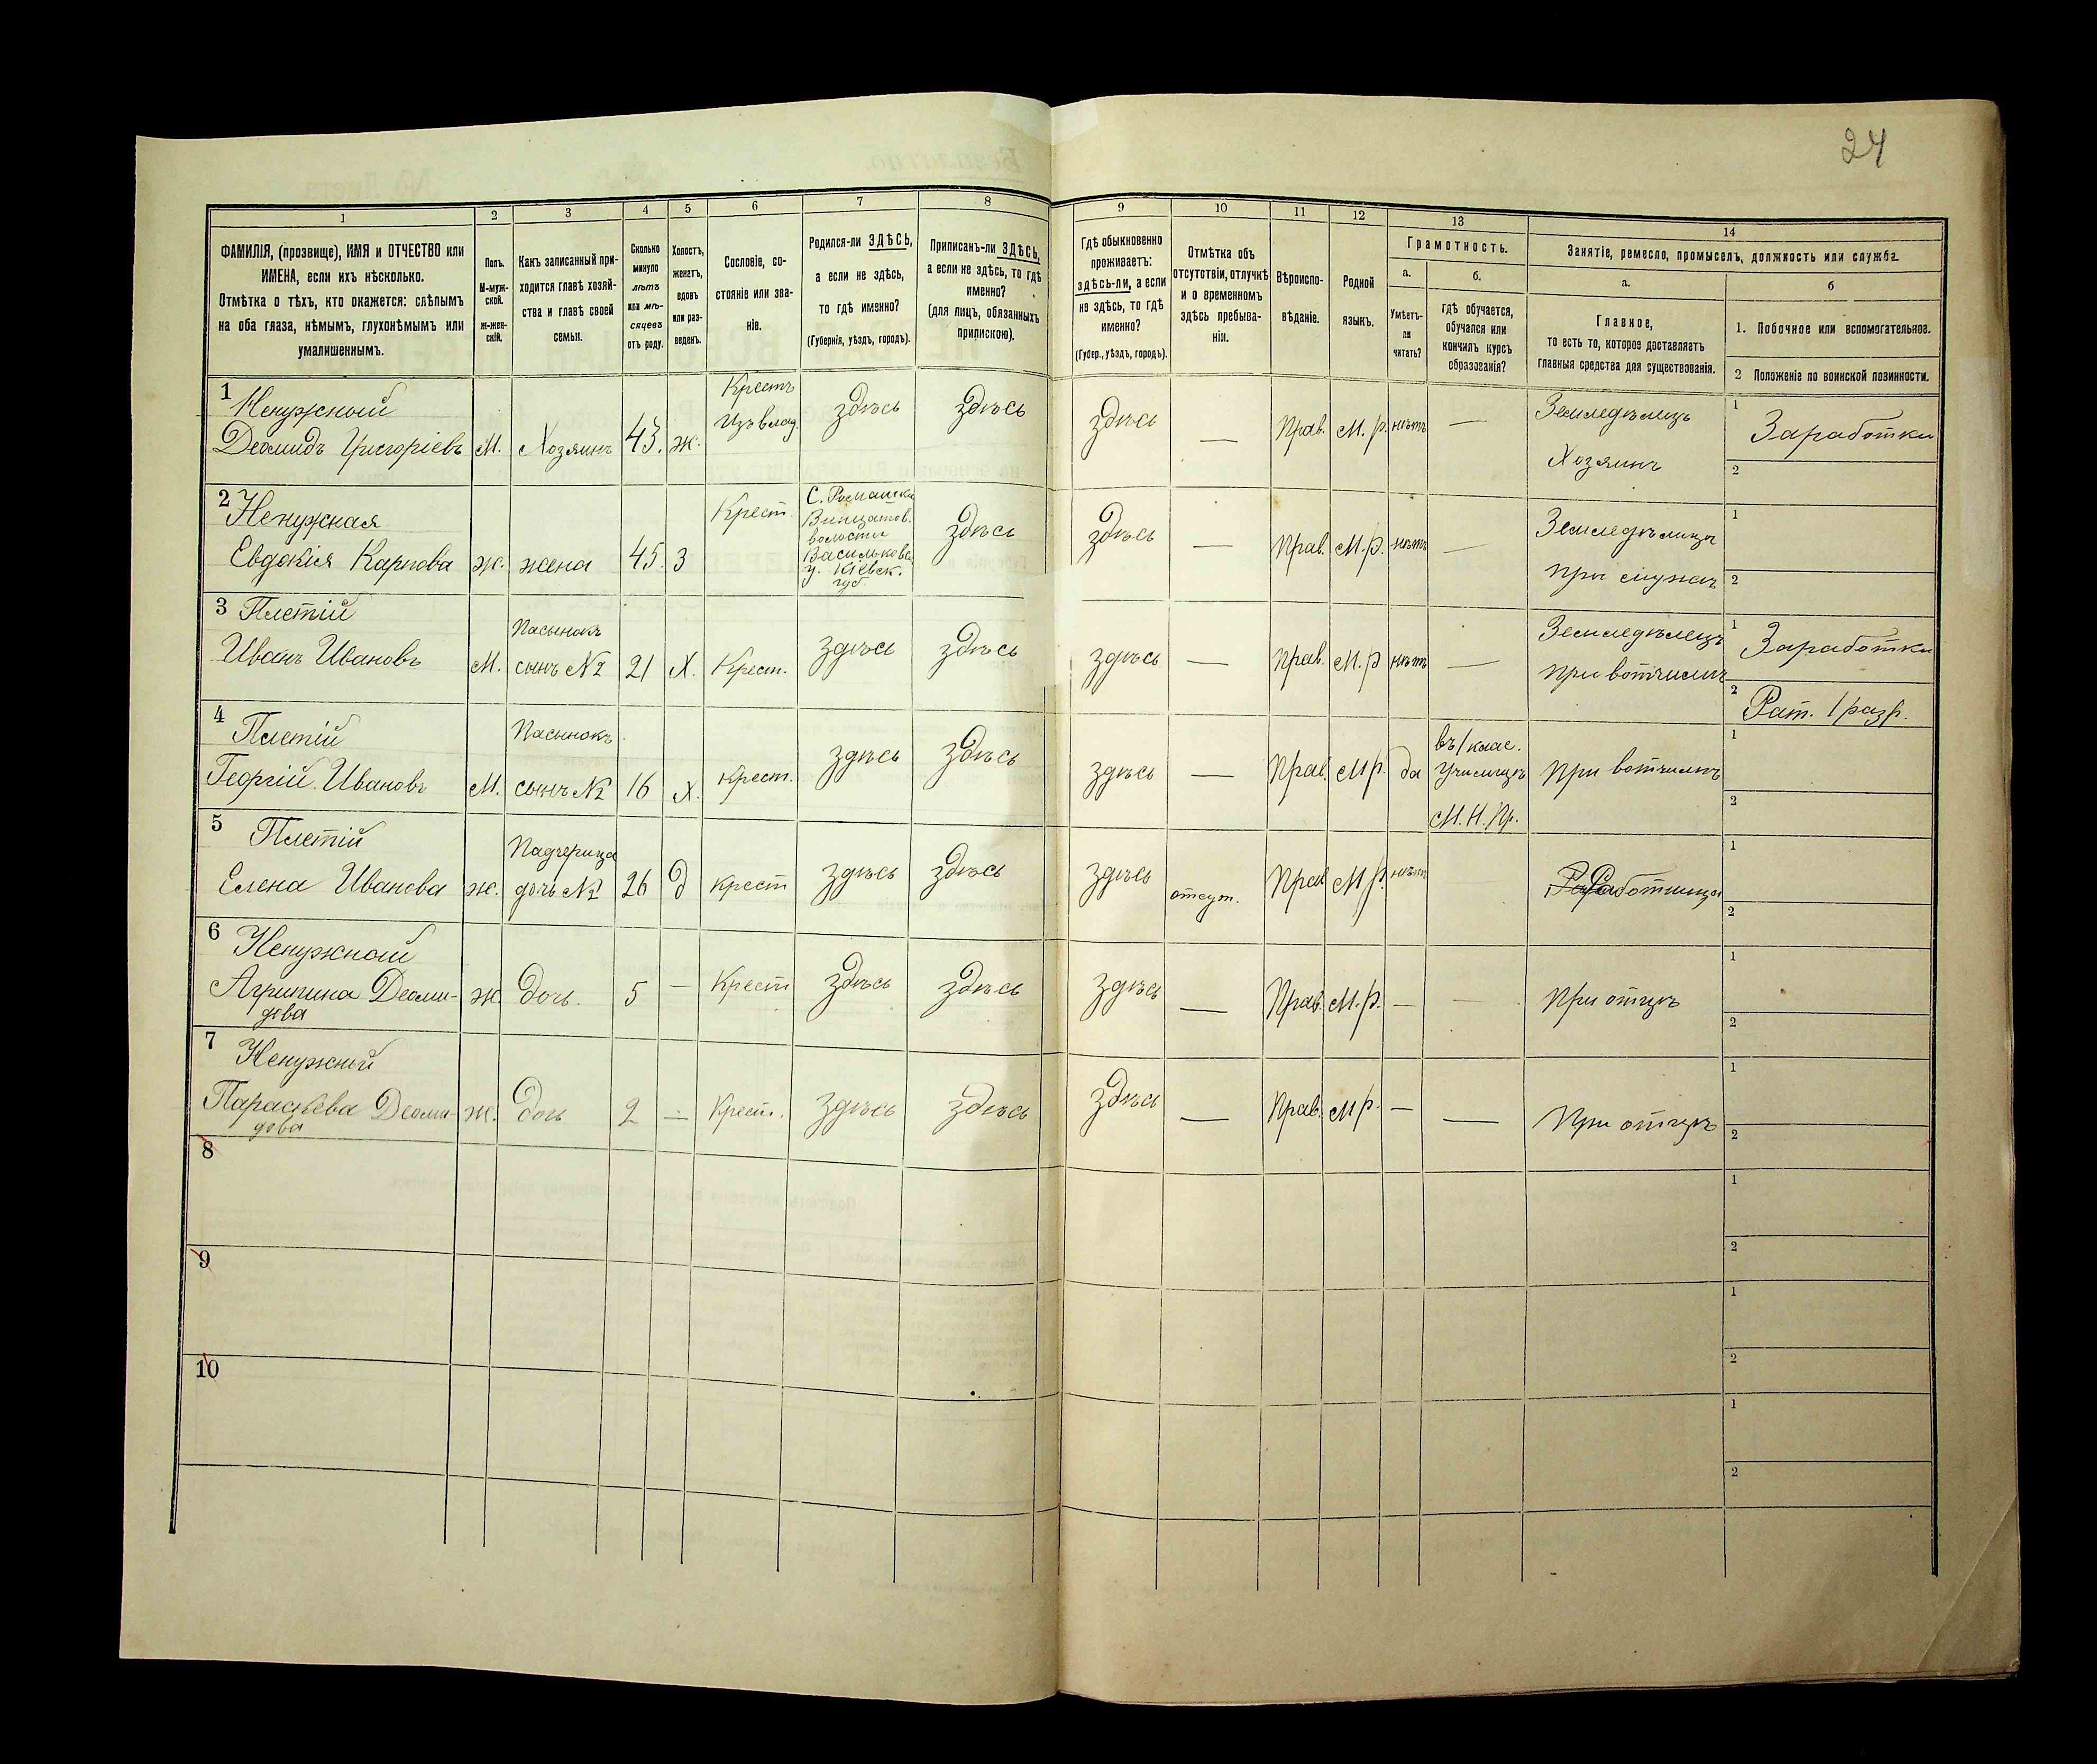 24
1 2 3 4 5 6 7 8 9 10 11 12 13 14
ФАМИЛІЯ, (прозвище), ИМЯ и ОТЧЕСТВО или
ИМЕНА, если ихъ нѣсколько.
Отмѣтка о тѣхъ, кто окажется: слѣпымъ
на оба глаза, нѣмымъ, глухонѣмымъ или
умалишеннымъ.
Полъ.
М-муж-
ской.
Ж-жен-
скій.
Какъ записанный при-
ходится главѣ хозяй-
ства и главѣ своей
семьи.
Сколько
минуло
лѣтъ
или мѣ-
сяцевъ
отъ роду.
Холостъ,
женатъ,
вдовъ
или раз-
веденъ.
Сословіе, со-
стояніе или зва-
ніе.
Родился-ли ЗДѢСЬ,
а если не здѣсь,
то гдѣ именно?
(Губернія, уѣздъ, городъ).
Приписанъ-ли ЗДѢСЬ,
а если не здѣсь, то гдѣ
именно?
(для лицъ, обязанныхъ
припискою).
Гдѣ обыкновенно
проживаетъ:
здѣсь-ли, а если
не здѣсь, то гдѣ
именно?
(Губер., уѣздъ, городъ).
Отмѣтка объ
отсутствіи, отлучкѣ
и о временномъ
здѣсь пребыва-
ніи.
Вѣроиспо-
вѣданіе.
Родной
языкъ.
Грамотность.
а.
Умѣетъ-
ли
читать?
б.
гдѣ обучается,
обучался или
кончилъ курсъ
образованія?
Занятіе, ремесло, промыселъ, должность или служба.
а.
Главное,
то есть то, которое доставляетъ
главныя средства для существованія.
б
1. Побочное или вспомогательное.
2 Положеніе по воинской повинности.
1
Ненужной
Деомидъ Григоріевъ
М.
Хозяинъ
43.
ж.
Крестъ
Изъ влад.
здѣсь
здѣсь
здѣсь
—
Прав.
М. р.
нѣтъ
—
Земледѣлецъ
Хозяинъ
1
Заработки
2
2
Ненужная
Евдокія Карпова
ж.
жена
45.
З
Крест.
С. Ромашки
Винцатов.
волости
Васильков.
у. Кіевск.
губ.
здѣсь
здѣсь
—
Прав.
М.р.
нѣтъ
—
Земледѣлица
при мужѣ
1
2
3
Плетій
Иванъ Ивановъ
М.
Пасынокъ
сынъ №2
21
Х.
Крест.
здѣсь
здѣсь
здѣсь
—
Прав.
М.р
нѣтъ
—
Земледѣлецъ
при вотчимѣ
1
Заработки
2
Рат. 1 разр.
4
Плетій
Георгій Ивановъ
М.
Пасынокъ
сынъ №2
16
Х.
Крест.
здѣсь
здѣсь
здѣсь
—
Прав.
М р.
да
въ 1 клас.
Училищѣ
М.Н.Пр.
при вотчимѣ
1
2
5
Плетій
Елена Иванова
ж.
Падчерица
дочь №2
26
д
крест
здѣсь
здѣсь
здѣсь
отсут.
Прав
М р.
нѣтъ
Работница
1
2
6
Ненужной
Агрипина Деоми-
дова
ж
Дочь.
5
—
Крест
здѣсь
здѣсь
здѣсь
—
Прав.
М.р.
—
—
При отцѣ
1
2
7
Ненужной
Параскева Деоми-
дова
ж.
Дочь
2
—
Крест.
здѣсь
здѣсь
здѣсь
—
Прав.
М р.
—
—
При отцѣ
1
2
8
1
2
9
1
2
10
1
2